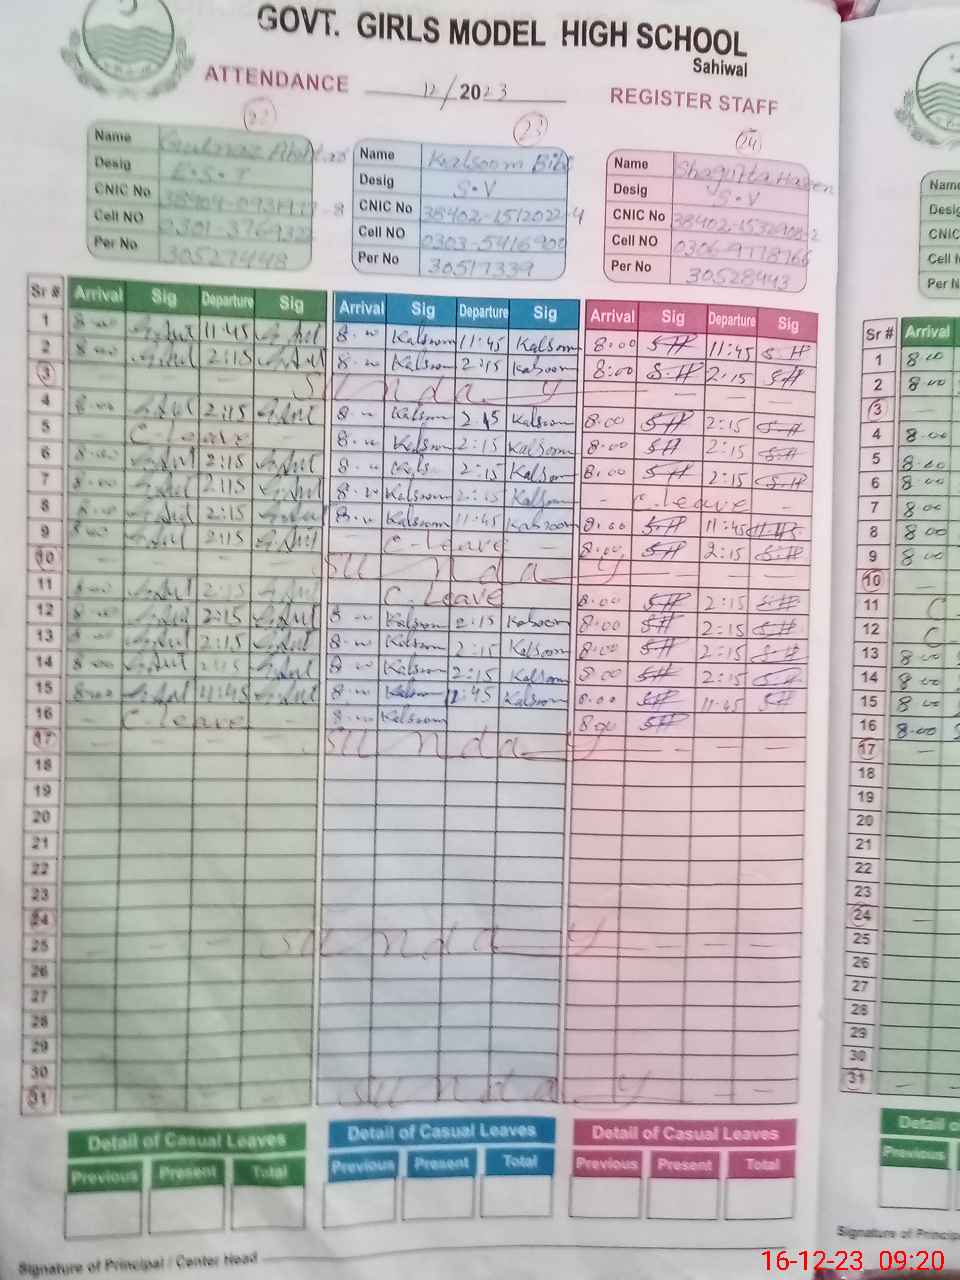 GOVT. GIRLS MODEL HIGH SCHOOL
Sahiwal
ATTENDANCE 12/2023 REGISTER STAFF
22 23 24
Name Gulnaz Name Kalsoom Bibi Name Shagufta
Desig E.S.T Desig S.V Desig S.V
CNIC No CNIC No 38402-1512022-4 CNIC No
Cell NO Cell NO Cell NO
Per No 30527448 Per No 30517339 Per No 30528443
Sr # Arrival Sig Departure Sig Arrival Sig Departure Sig Arrival Sig Departure Sig Sr # Arrival
1 8:00 11:45 8:00 Kalsoom 11:45 Kalsoom 8:00 SH 11:45 SH 1 8:00
2 8:00 2:15 8:00 Kalsoom 2:15 Kalsoom 8:00 SH 2:15 SH 2 8:00
3 Sunday 3
4 8:00 2:15 8:00 Kalsoom 2:15 Kalsoom 8:00 SH 2:15 SH 4 8:00
5 C.leave 8:00 Kalsoom 2:15 Kalsoom 8:00 SH 2:15 SH 5 8:00
6 8:00 2:15 8:00 2:15 Kalsoom 8:00 SH 2:15 SH 6 8:00
7 8:00 2:15 8:00 Kalsoom 2:15 Kalsoom C.leave 7 8:00
8 8:00 2:15 8:00 Kalsoom 11:45 Kalsoom 8:00 SH 11:45 8 8:00
9 8:00 2:15 C-leave 8:00 SH 2:15 SH 9 8:00
10 Sunday 10
11 8:00 2:15 C.Leave 8:00 SH 2:15 SH 11 C
12 8:00 2:15 8:00 Kalsoom 2:15 Kalsoom 8:00 SH 2:15 SH 12 C
13 8:00 2:15 8:00 Kalsoom 2:15 Kalsoom 8:00 SH 2:15 SH 13 8:00
14 8:00 2:15 8:00 Kalsoom 2:15 Kalsoom 8:00 SH 2:15 SH 14 8:00
15 8:00 11:45 8:00 Kalsoom 11:45 Kalsoom 8:00 SH 11:45 SH 15 8:00
16 C.leave 8:00 Kalsoom 8:00 SH 16 8:00
17 Sunday 17
18 18
19 19
20 20
21 21
22 22
23 23
24 Sunday 24
25 25
26 26
27 27
28 28
29 29
30 30
31 Sunday 31
Detail of Casual Leaves Detail of Casual Leaves Detail of Casual Leaves Detail o
Previous Present Total Previous Present Total Previous Present Total Previous
Signature of Principal / Center Head Signature of Princip
16-12-23 09:20